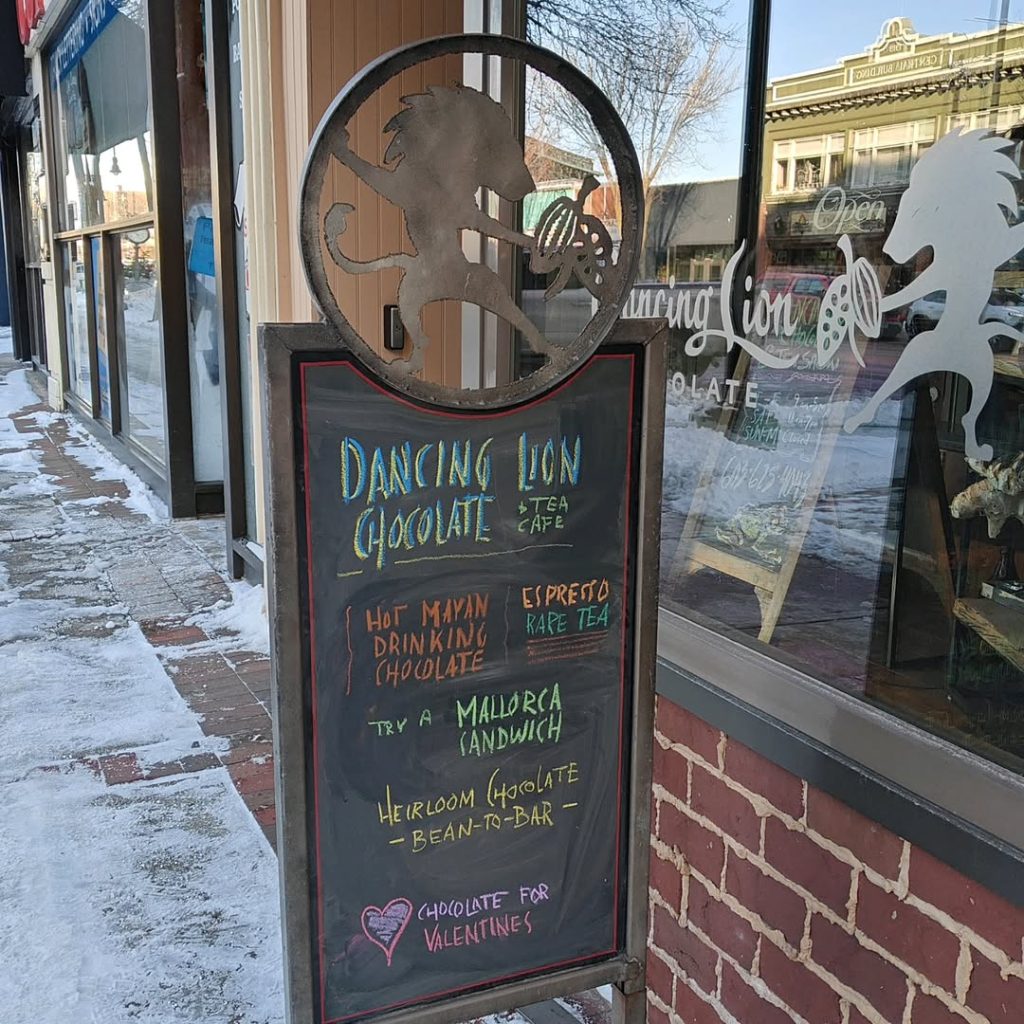 DANCING LION
CHOCOLATE
& TEA
CAFE
HOT MAYAN
DRINKING
CHOCOLATE
ESPRESSO
RARE TEA
TRY A
MALLORCA
SANDWICH
HEIRLOOM CHOCOLATE
- BEAN-TO-BAR -
CHOCOLATE FOR
VALENTINES
Open
Dancing Lion
OLATE
CENTRAL BUILDING